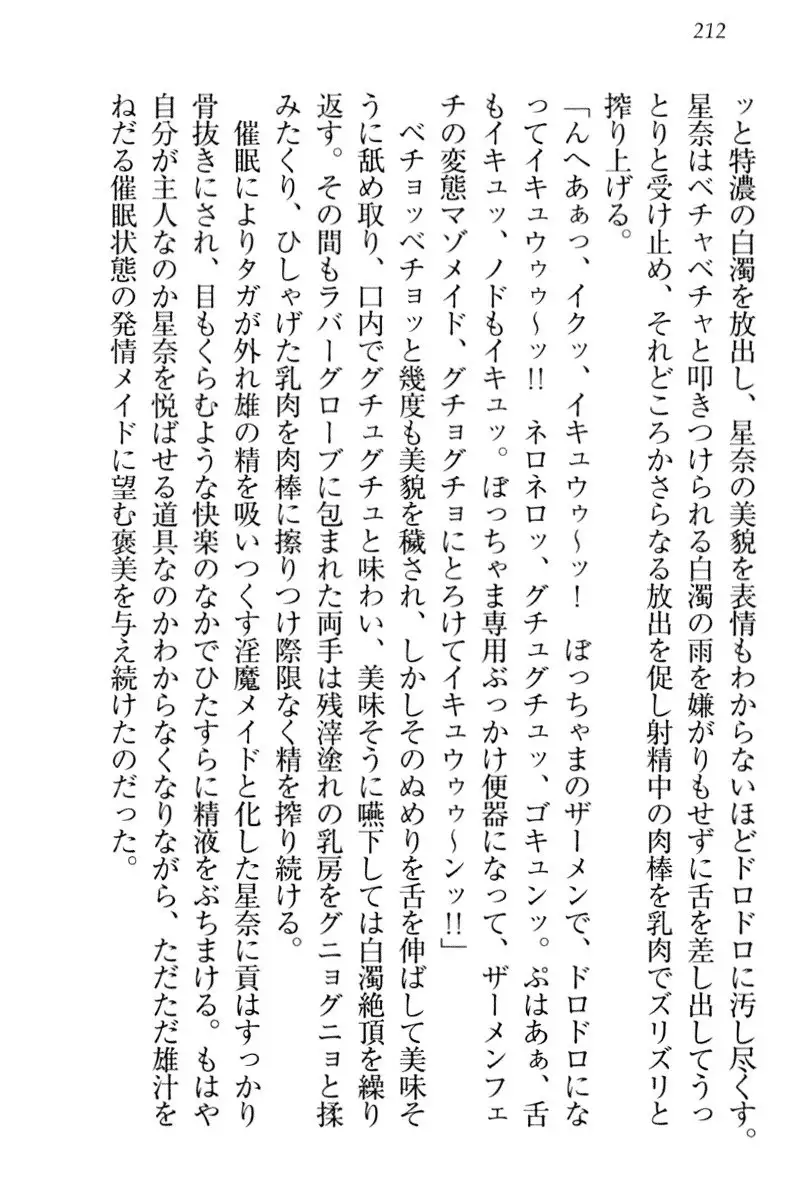 212
ッと特濃の白濁を放出し、星奈の美貌を表情もわからないほどドロドロに汚し尽くす。
星奈はベチャベチャと叩きつけられる白濁の雨を嫌がりもせずに舌を差し出してうっ
とりと受け止め、それどころかさらなる放出を促し射精中の肉棒を乳肉でズリズリと
搾り上げる。
「んへあぁっ、イクッ、イキュウゥ〜ッ！　ぼっちゃまのザーメンで、ドロドロにな
ってイキュウゥゥ〜ッ!!　ネロネロッ、グチュグチュッ、ゴキュンッ。ぷはあぁ、舌
もイキュッ、ノドもイキュッ。ぼっちゃま専用ぶっかけ便器になって、ザーメンフェ
チの変態マゾメイド、グチョグチョにとろけてイキュウゥゥ〜ンッ!!」
ベチョッベチョッと幾度も美貌を穢され、しかしそのぬめりを舌を伸ばして美味そ
うに舐め取り、口内でグチュグチュと味わい、美味そうに嚥下しては白濁絶頂を繰り
返す。その間もラバーグローブに包まれた両手は残滓塗れの乳房をグニョグニョと揉
みたくり、ひしゃげた乳肉を肉棒に擦りつけ際限なく精を搾り続ける。
催眠によりタガが外れ雄の精を吸いつくす淫魔メイドと化した星奈に貢はすっかり
骨抜きにされ、目もくらむような快楽のなかでひたすらに精液をぶちまける。もはや
自分が主人なのか星奈を悦ばせる道具なのかわからなくなりながら、ただただ雄汁を
ねだる催眠状態の発情メイドに望む褒美を与え続けたのだった。